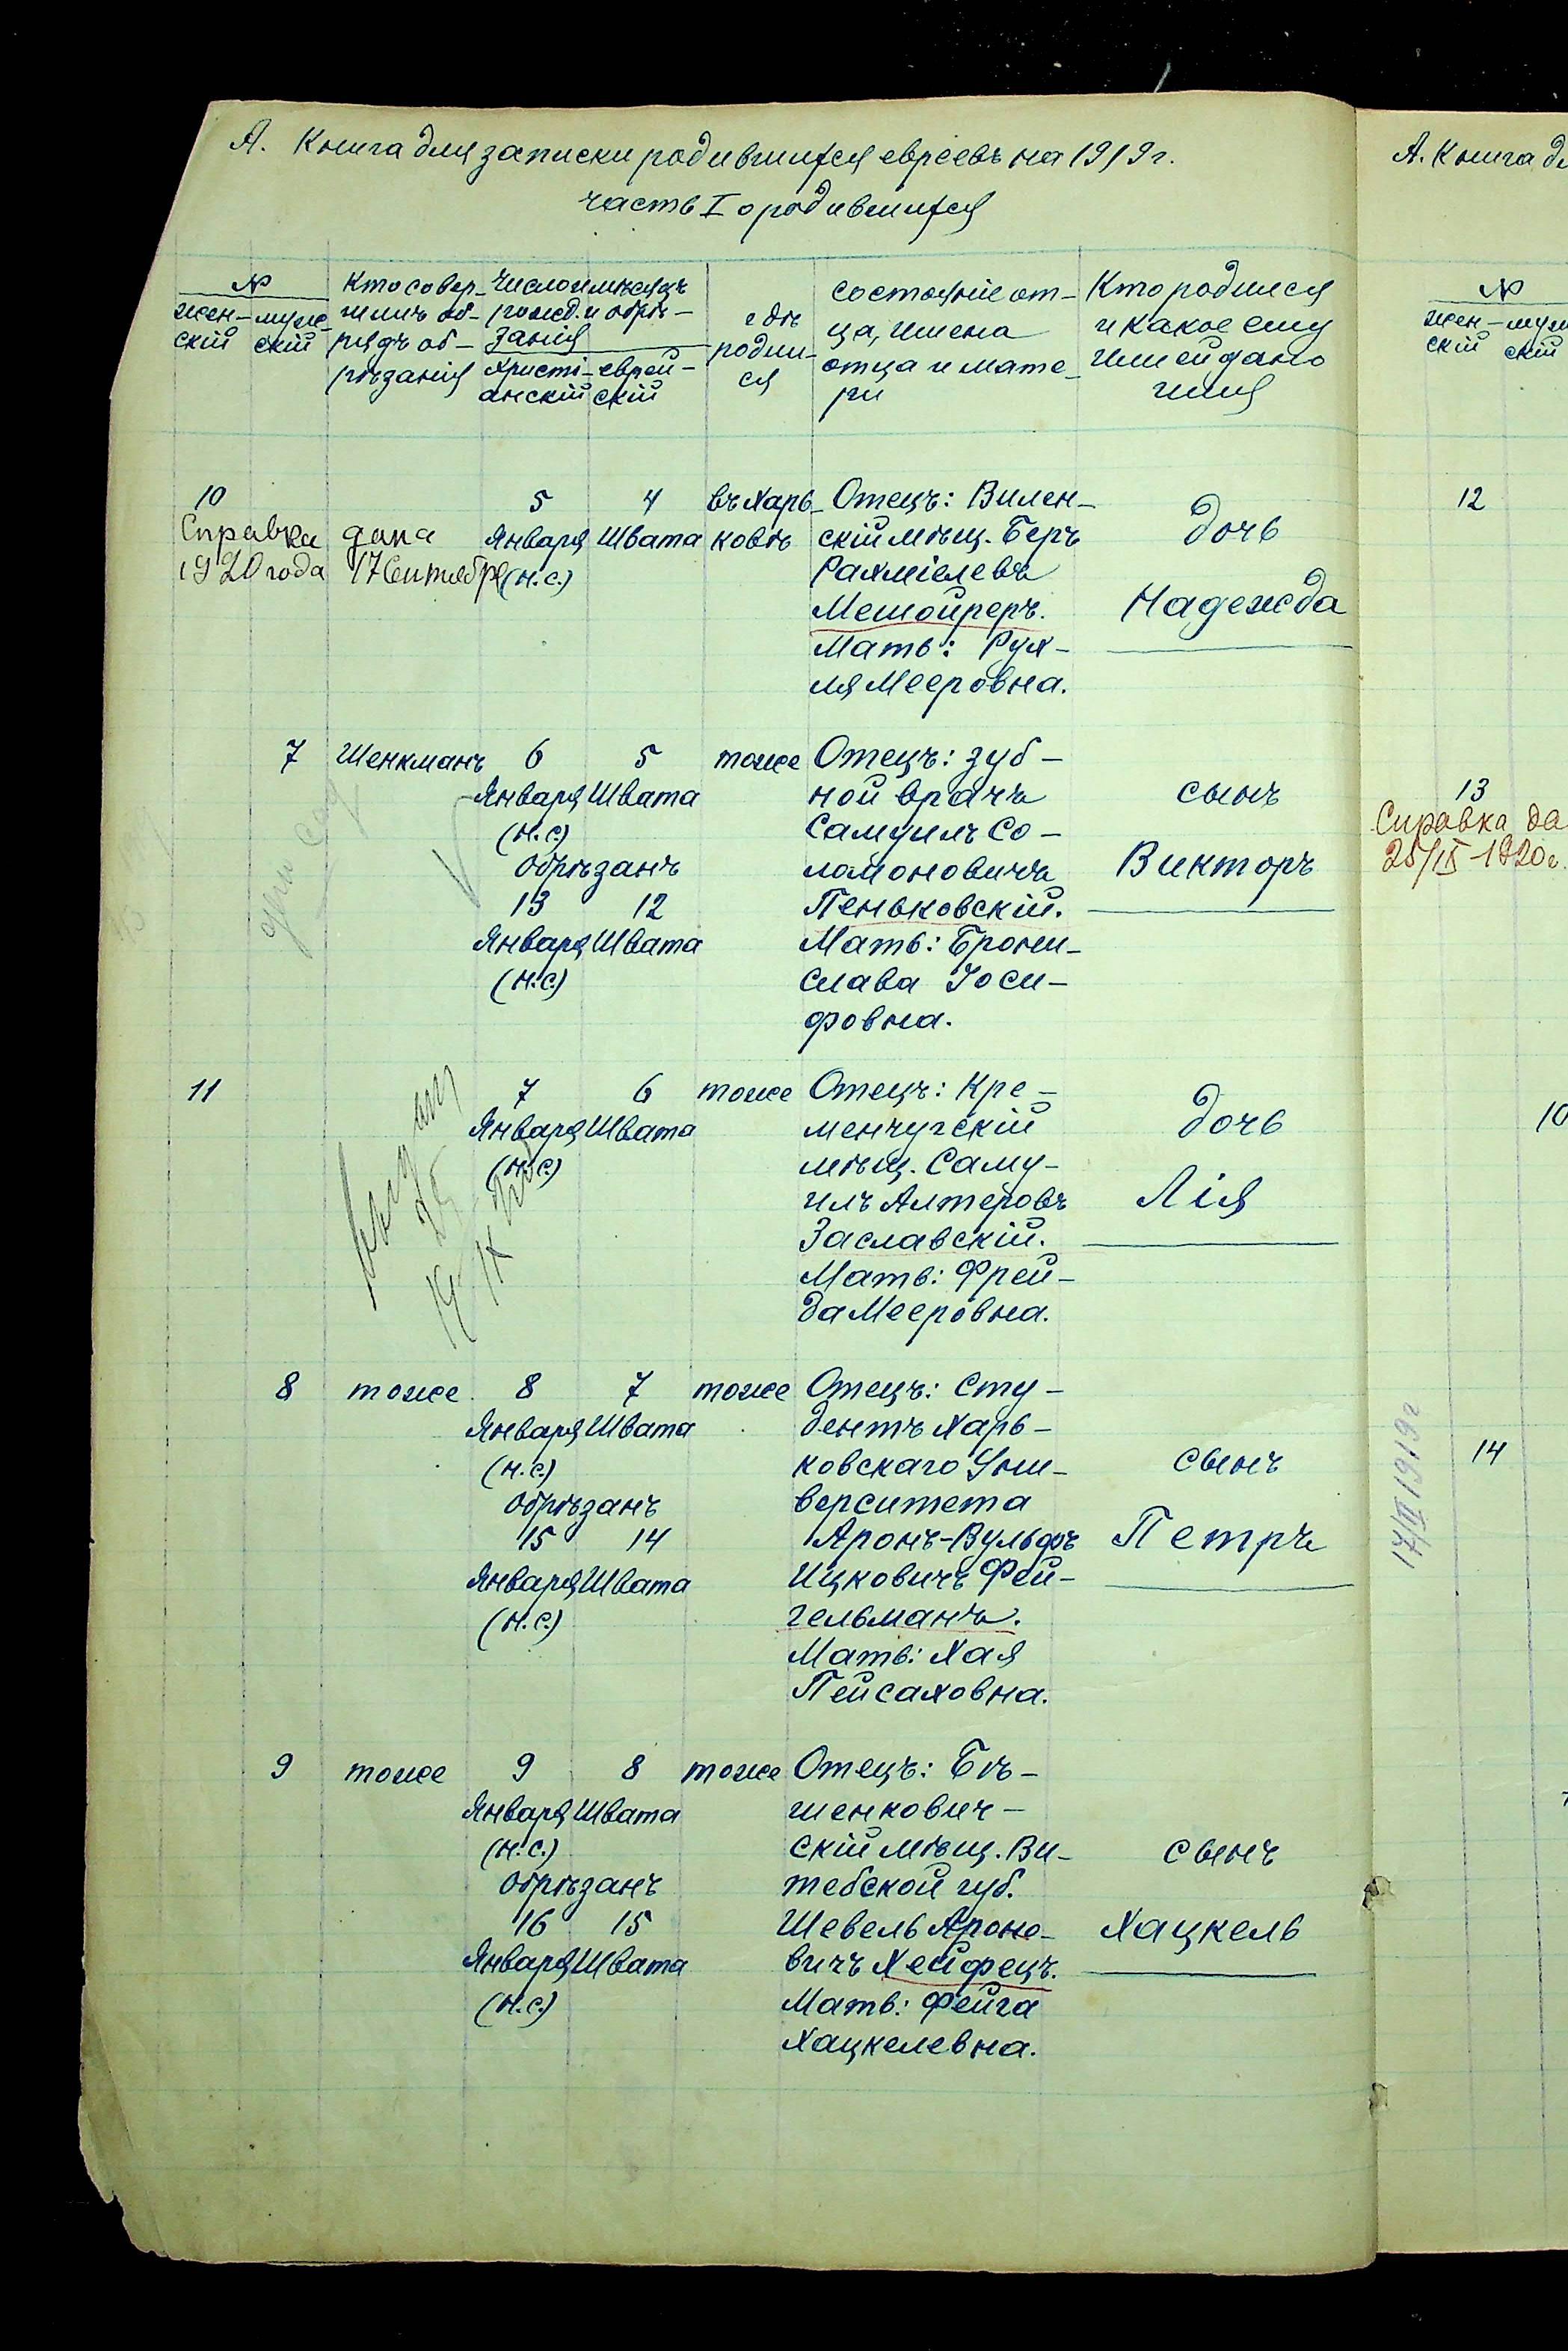 А. Книга для записки родившихся евреевъ на 1919 г.
часть I о родившихся
№
жен-скій
муже-скій
Кто совер-
шилъ об-
рядъ об-
рѣзанія
Число и мѣсяцъ
рожд. и обрѣ-
занія
Христі-
анскій
еврей-
скій
гдѣ
родил-
ся
Состояніе от-
ца, имена
отца и мате-
ри
Кто родился
и какое ему
или ей дано
имя
10
Справка дана
1920 года 17 Сентября
5 4
Января Швата
(н.с.)
въ Харь-
ковѣ
Отецъ: Вилен-
скій мѣщ. Беръ
Рахміелевъ
Мешойреръ.
Мать: Рух-
ля Мееровна.
дочь
Надежда
7 Шенкманъ
6 5
Января Швата
(н.с.)
Обрѣзанъ
13 12
Января Швата
(н.с.)
тоже
Отецъ: зуб-
ной врачъ
Самуилъ Со-
ломоновичъ
Пеньковскій.
Мать: Брони-
слава Іоси-
фовна.
сынъ
Викторъ
11
7 6
Января Швата
(н.с.)
тоже
Отецъ: Кре-
менчугскій
мѣщ. Саму-
илъ Алтеровъ
Заславскій.
Мать: Фрей-
да Мееровна.
дочь
Лія
8 тоже
8 7
Января Швата
(н.с.)
Обрѣзанъ
15 14
Января Швата
(н.с.)
тоже
Отецъ: Сту-
дентъ Харь-
ковскаго Уни-
верситета
Аронъ-Вульфъ
Ицковичъ Фей-
гельманъ.
Мать: Хая
Пейсаховна.
сынъ
Петръ
9 тоже
9 8
Января Швата
(н.с.)
Обрѣзанъ
16 15
Января Швата
(н.с.)
тоже
Отецъ: Бѣ-
шенкович-
скій мѣщ. Ви-
тебской губ.
Шевель Ароно-
вичъ Хейфецъ.
Мать: Фейга
Хацкелевна.
сынъ
Хацкель
А. Книга дл
№
жен-скій
муж
скій
12
13
Справка да
25/IX-1920г.
10
14
17/II 1919 г